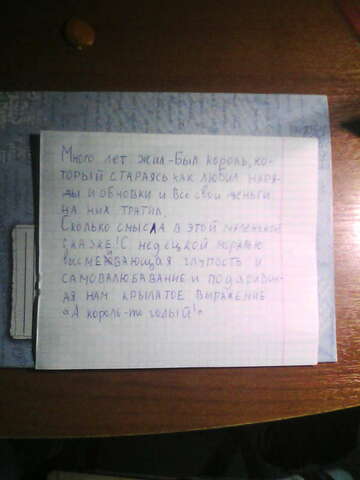 Много лет жил-был король, ко-
торый стараясь как любил наря-
ды и обновки и все свои деньги
на них тратил.
Сколько смысла в этой маленькой
сказке! С недецкой моралью
высмеивающая глупость и
самовалюбавание и подарив
ая нам крылатое выражение
«А король-то голый!»